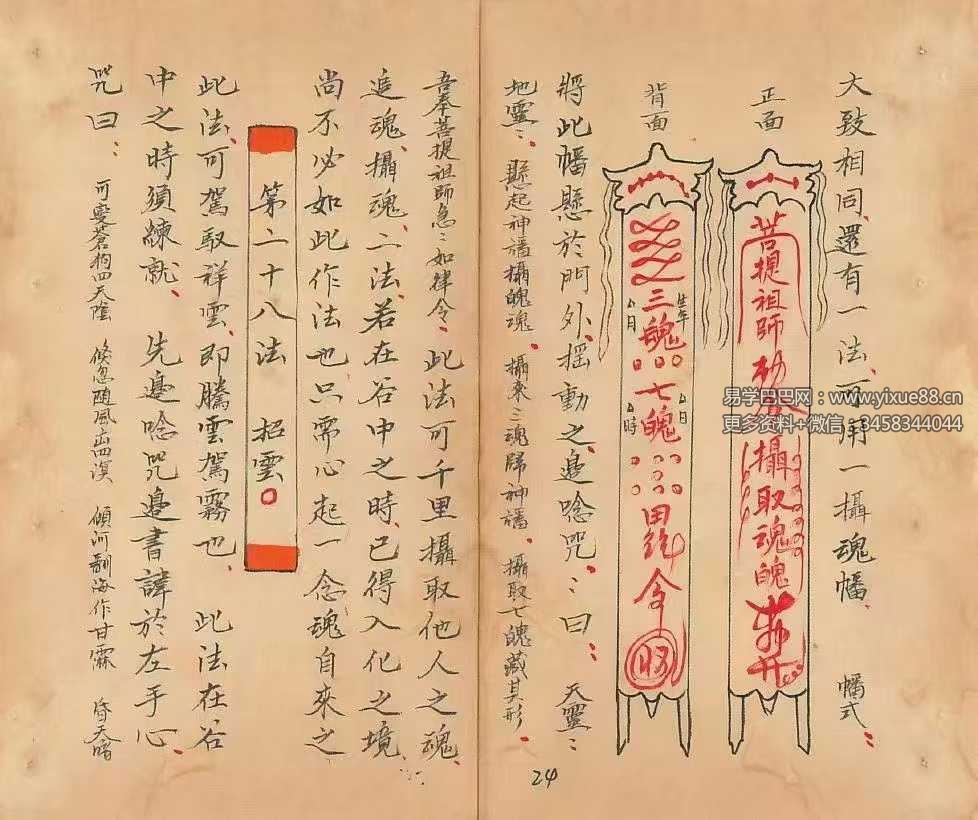 大致相同還有一法可用一攝魂幡 幡式
正面
菩提祖師
攝取魂魄
背面
三魄七魄
生年
△月
△日
△時
將此幡懸於門外搖動之邊唸咒：曰：天靈：
地靈：懸起神幡攝魄魂 攝來三魂歸神幡 攝取七魄藏其形
吾奉菩提祖師急：如律令：此法可千里攝取他人之魂
追魂攝魂二法若在谷中之時已得入化之境
尚不必如此作法也只需心起一念魂自來之
第二十八法 招雲
此法可駕馭祥雲即騰雲駕霧也 此法在谷
中之時須練就 先邊唸咒邊書諱於左手心
咒曰：可變蒼狗四天陰 倏忽隨風出四溟 傾河翻海作甘霖 昏天暗
24
易学巴巴网：www.yixue88.cn
更多资料+微信：13458344044